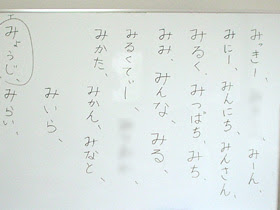 みっきー、みーん、
みにー、みんにち、みんさん、
みるく、みつばち、みち
みみ、みんな、みる、
みるくてぃー、
みかた、みかん、みなと、
みいら、
みょうじ、みらい、